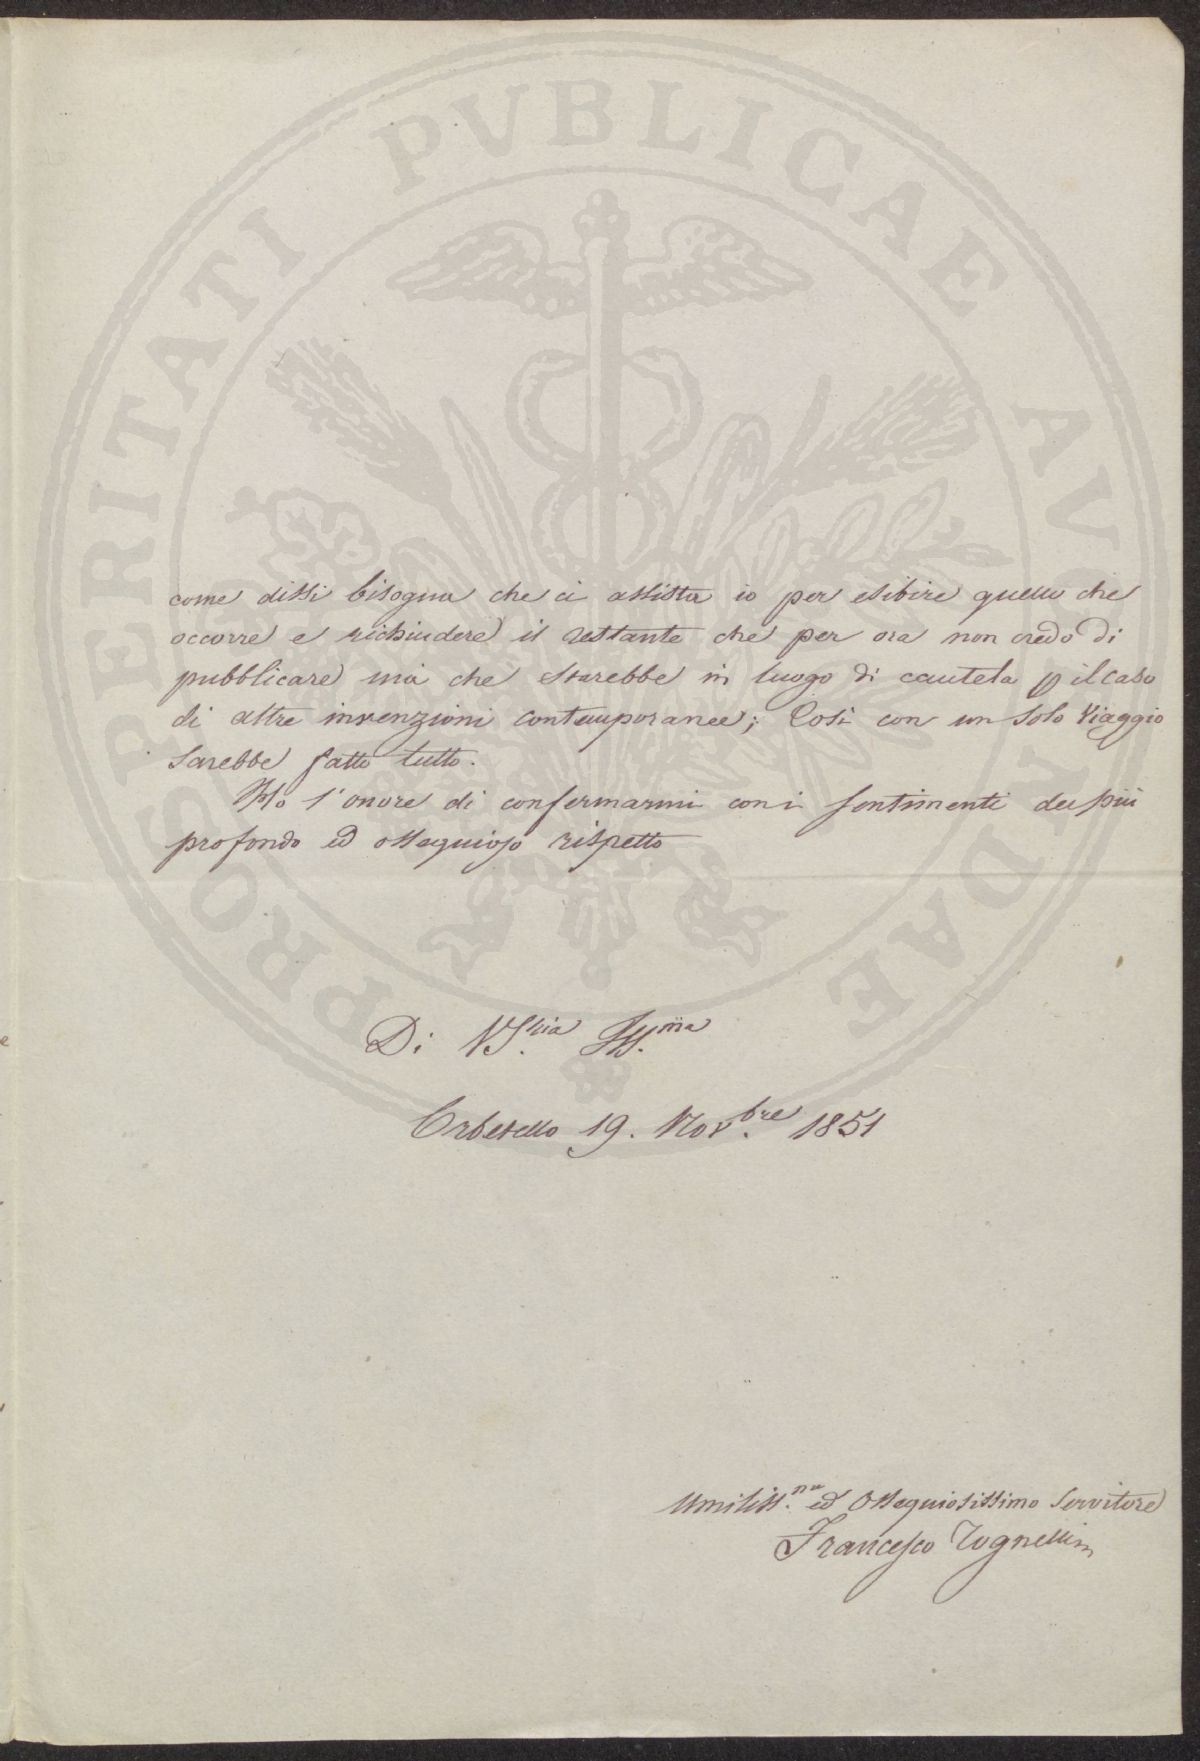 come dissi bisogna che ci assista io per esibire quello che
occorre e richiudere il restante che per ora non credo di
pubblicare ma che starebbe in luogo di cautela p il caso
di altre invenzioni contemporanee; Così con un solo Viaggio
sarebbe fatto tutto.
Ho l'onore di confermarmi con i sentimenti del più
profondo ed ossequioso rispetto
Di VS.ria Ill.ma
Orbetello 19. Nov.bre 1851
Umiliss.mo ed Ossequiosissimo Servitore
Francesco Tognellini
PROSPERITATI PVBLICAE AVGENDAE